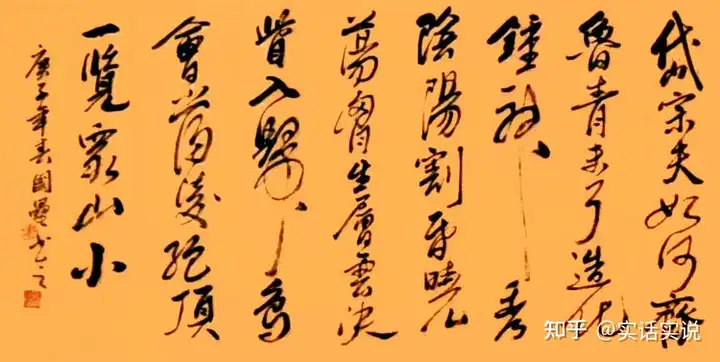 岱宗夫如何齊
魯青未了造化
鍾神秀
陰陽割昏曉
蕩胷生層雲決
眥入歸鳥
會當凌絕頂
一覽眾山小
庚子年春國書之
知乎 @实话实说